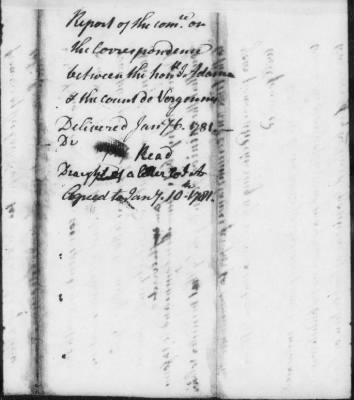 Report of the comee. on
the Correspondence
between the honl. J. Adams
& the count de Vergennes
Delivered Jany 6. 1781.
Do
Read
Draught of a letter to J. A.
Agreed to Jany. 10th. 1781.